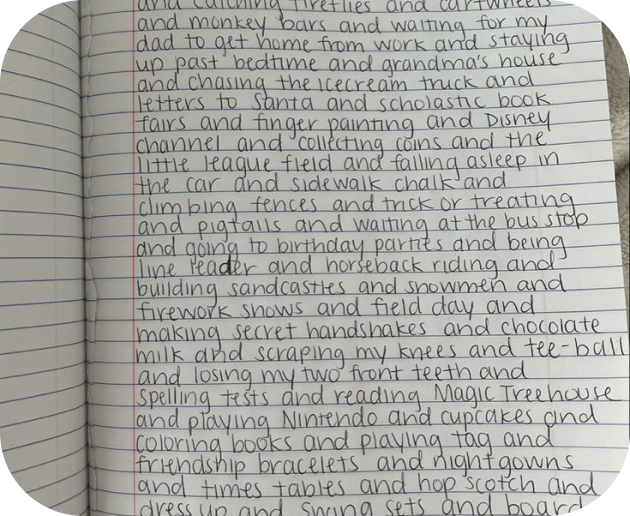 and catching fireflies and cartwheels
and monkey bars and waiting for my
dad to get home from work and staying
up past bedtime and grandma's house
and chasing the icecream truck and
letters to santa and scholastic book
fairs and finger painting and Disney
channel and collecting coins and the
little league field and falling asleep in
the car and sidewalk chalk and
climbing fences and trick or treating
and pigtails and waiting at the bus stop
and going to birthday parties and being
line leader and horseback riding and
building sandcastles and snowmen and
firework shows and field day and
making secret handshakes and chocolate
milk and scraping my knees and tee-ball
and losing my two front teeth and
spelling tests and reading Magic Treehouse
and playing Nintendo and cupcakes and
coloring books and playing tag and
friendship bracelets and nightgowns
and times tables and hop scotch and
dress up and swing sets and board